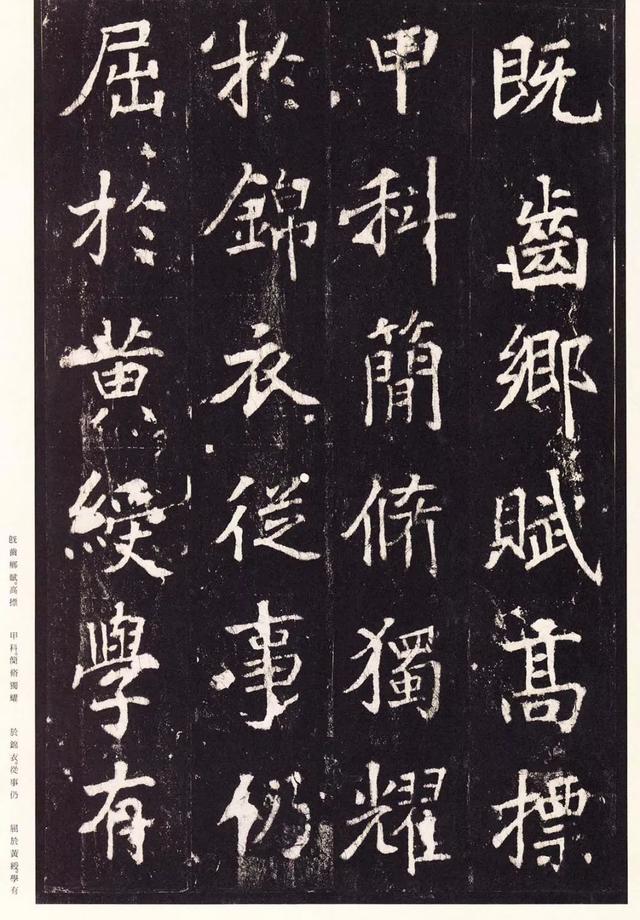 既齒鄉賦高標
甲科簡脩獨耀
於錦衣從事仍
屈於黃綬學有
既齒鄉賦。高標 甲科。簡脩獨耀 於錦衣。從事仍 屈於黃綬。學有